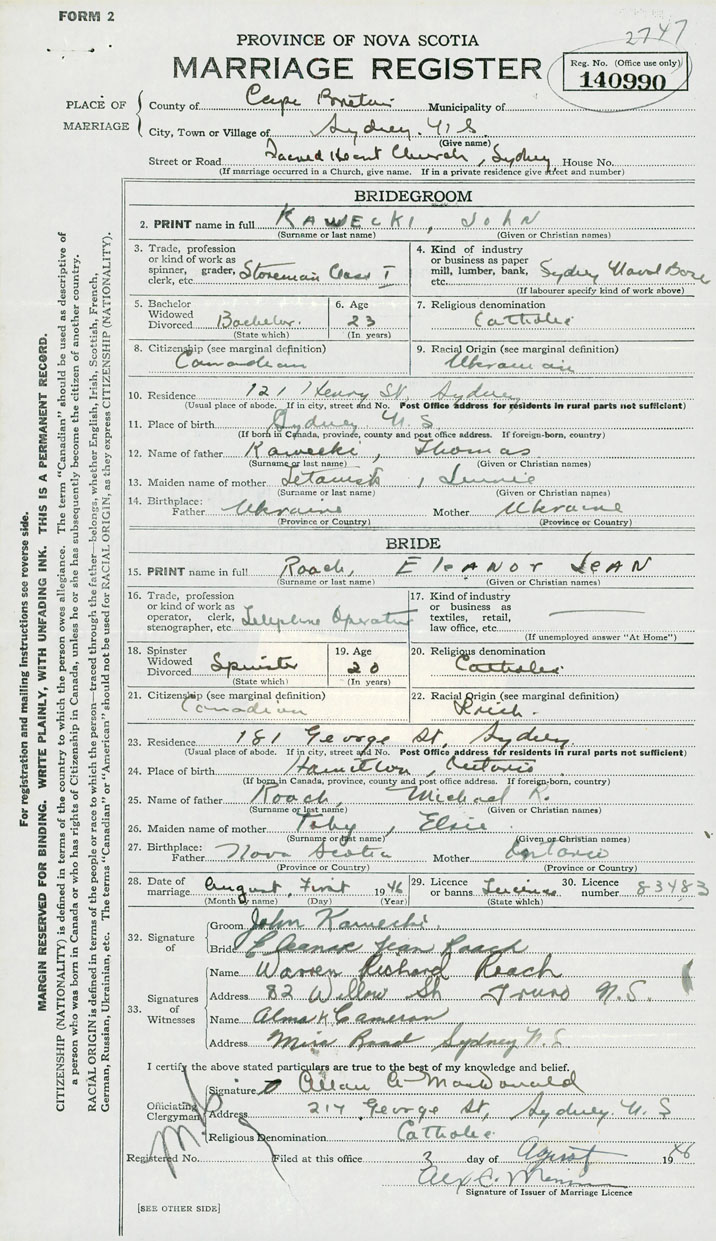 FORM 2
2747
PROVINCE OF NOVA SCOTIA
MARRIAGE REGISTER
Reg. No. (Office use only)
140990
PLACE OF MARRIAGE
County of Cape Breton Municipality of
City, Town or Village of Sydney. N S.
(Give name)
Street or Road Sacred Heart Church, Sydney House No.
(If marriage occurred in a Church, give name. If in a private residence give street and number)
BRIDEGROOM
2. PRINT name in full KAWECKI, JOHN
(Surname or last name) (Given or Christian names)
3. Trade, profession or kind of work as spinner, grader, clerk, etc. Storeman Class I
4. Kind of industry or business as paper mill, lumber, bank, etc. Sydney Naval Base
(If labourer specify kind of work above)
5. Bachelor Widowed Divorced Bachelor.
(State which)
6. Age 23
(In years)
7. Religious denomination Catholic
8. Citizenship (see marginal definition) Canadian
9. Racial Origin (see marginal definition) Ukrainian
10. Residence 121 Henry St, Sydney
(Usual place of abode. If in city, street and No. Post Office address for residents in rural parts not sufficient)
11. Place of birth Sydney N. S
(If born in Canada, province, county and post office address. If foreign-born, country)
12. Name of father Kawecki, Thomas
(Surname or last name) (Given or Christian names)
13. Maiden name of mother , Jennie
(Surname or last name) (Given or Christian names)
14. Birthplace: Father Ukraine Mother Ukraine
(Province or Country) (Province or Country)
BRIDE
15. PRINT name in full Roach, ElEANOr JEAN
(Surname or last name) (Given or Christian names)
16. Trade, profession or kind of work as operator, clerk, stenographer, etc. Telephone Operator
17. Kind of industry or business as textiles, retail, law office, etc.
(If unemployed answer "At Home")
18. Spinster Widowed Divorced Spinster
(State which)
19. Age 20
(In years)
20. Religious denomination Catholic
21. Citizenship (see marginal definition) Canadian
22. Racial Origin (see marginal definition) Irish.
23. Residence 181 George St, Sydney
(Usual place of abode. If in city, street and No. Post Office address for residents in rural parts not sufficient)
24. Place of birth Hamilton, Ontario
(If born in Canada, province, county and post office address. If foreign-born, country)
25. Name of father Roach, Michael R.
(Surname or last name) (Given or Christian names)
26. Maiden name of mother Toby, Elsie
(Surname or last name) (Given or Christian names)
27. Birthplace: Father Nova Scotia Mother Ontario
(Province or Country) (Province or Country)
28. Date of marriage August, First 1946
(Month by name) (Day) (Year)
29. Licence or banns License
(State which)
30. Licence number 83483
32. Signature of
Groom John Kawecki.
Bride Eleanor Jean Roach
33. Signatures of Witnesses
Name Warren Richard Roach
Address 82 Willow St Truro N.S.
Name Alma K Cameron
Address Mira Road Sydney N.S.
I certify the above stated particulars are true to the best of my knowledge and belief.
Officiating Clergyman
Signature Allan A MacDonald
Address 217 George St, Sydney. N. S
Religious Denomination Catholic
Registered No. Filed at this office 3 day of August 1946
Alex C.
Signature of Issuer of Marriage Licence
[SEE OTHER SIDE]
For registration and mailing instructions see reverse side.
MARGIN RESERVED FOR BINDING. WRITE PLAINLY, WITH UNFADING INK. THIS IS A PERMANENT RECORD.
CITIZENSHIP (NATIONALITY) is defined in terms of the country to which the person owes allegiance. The term "Canadian" should be used as descriptive of
a person who was born in Canada or who has rights of Citizenship in Canada, unless he or she has subsequently become the citizen of another country.
RACIAL ORIGIN is defined in terms of the people or race to which the person—traced through the father—belongs, whether English, Irish, Scottish, French,
German, Russian, Ukrainian, etc. The terms "Canadian" or "American" should not be used for RACIAL ORIGIN, as they express CITIZENSHIP (NATIONALITY).